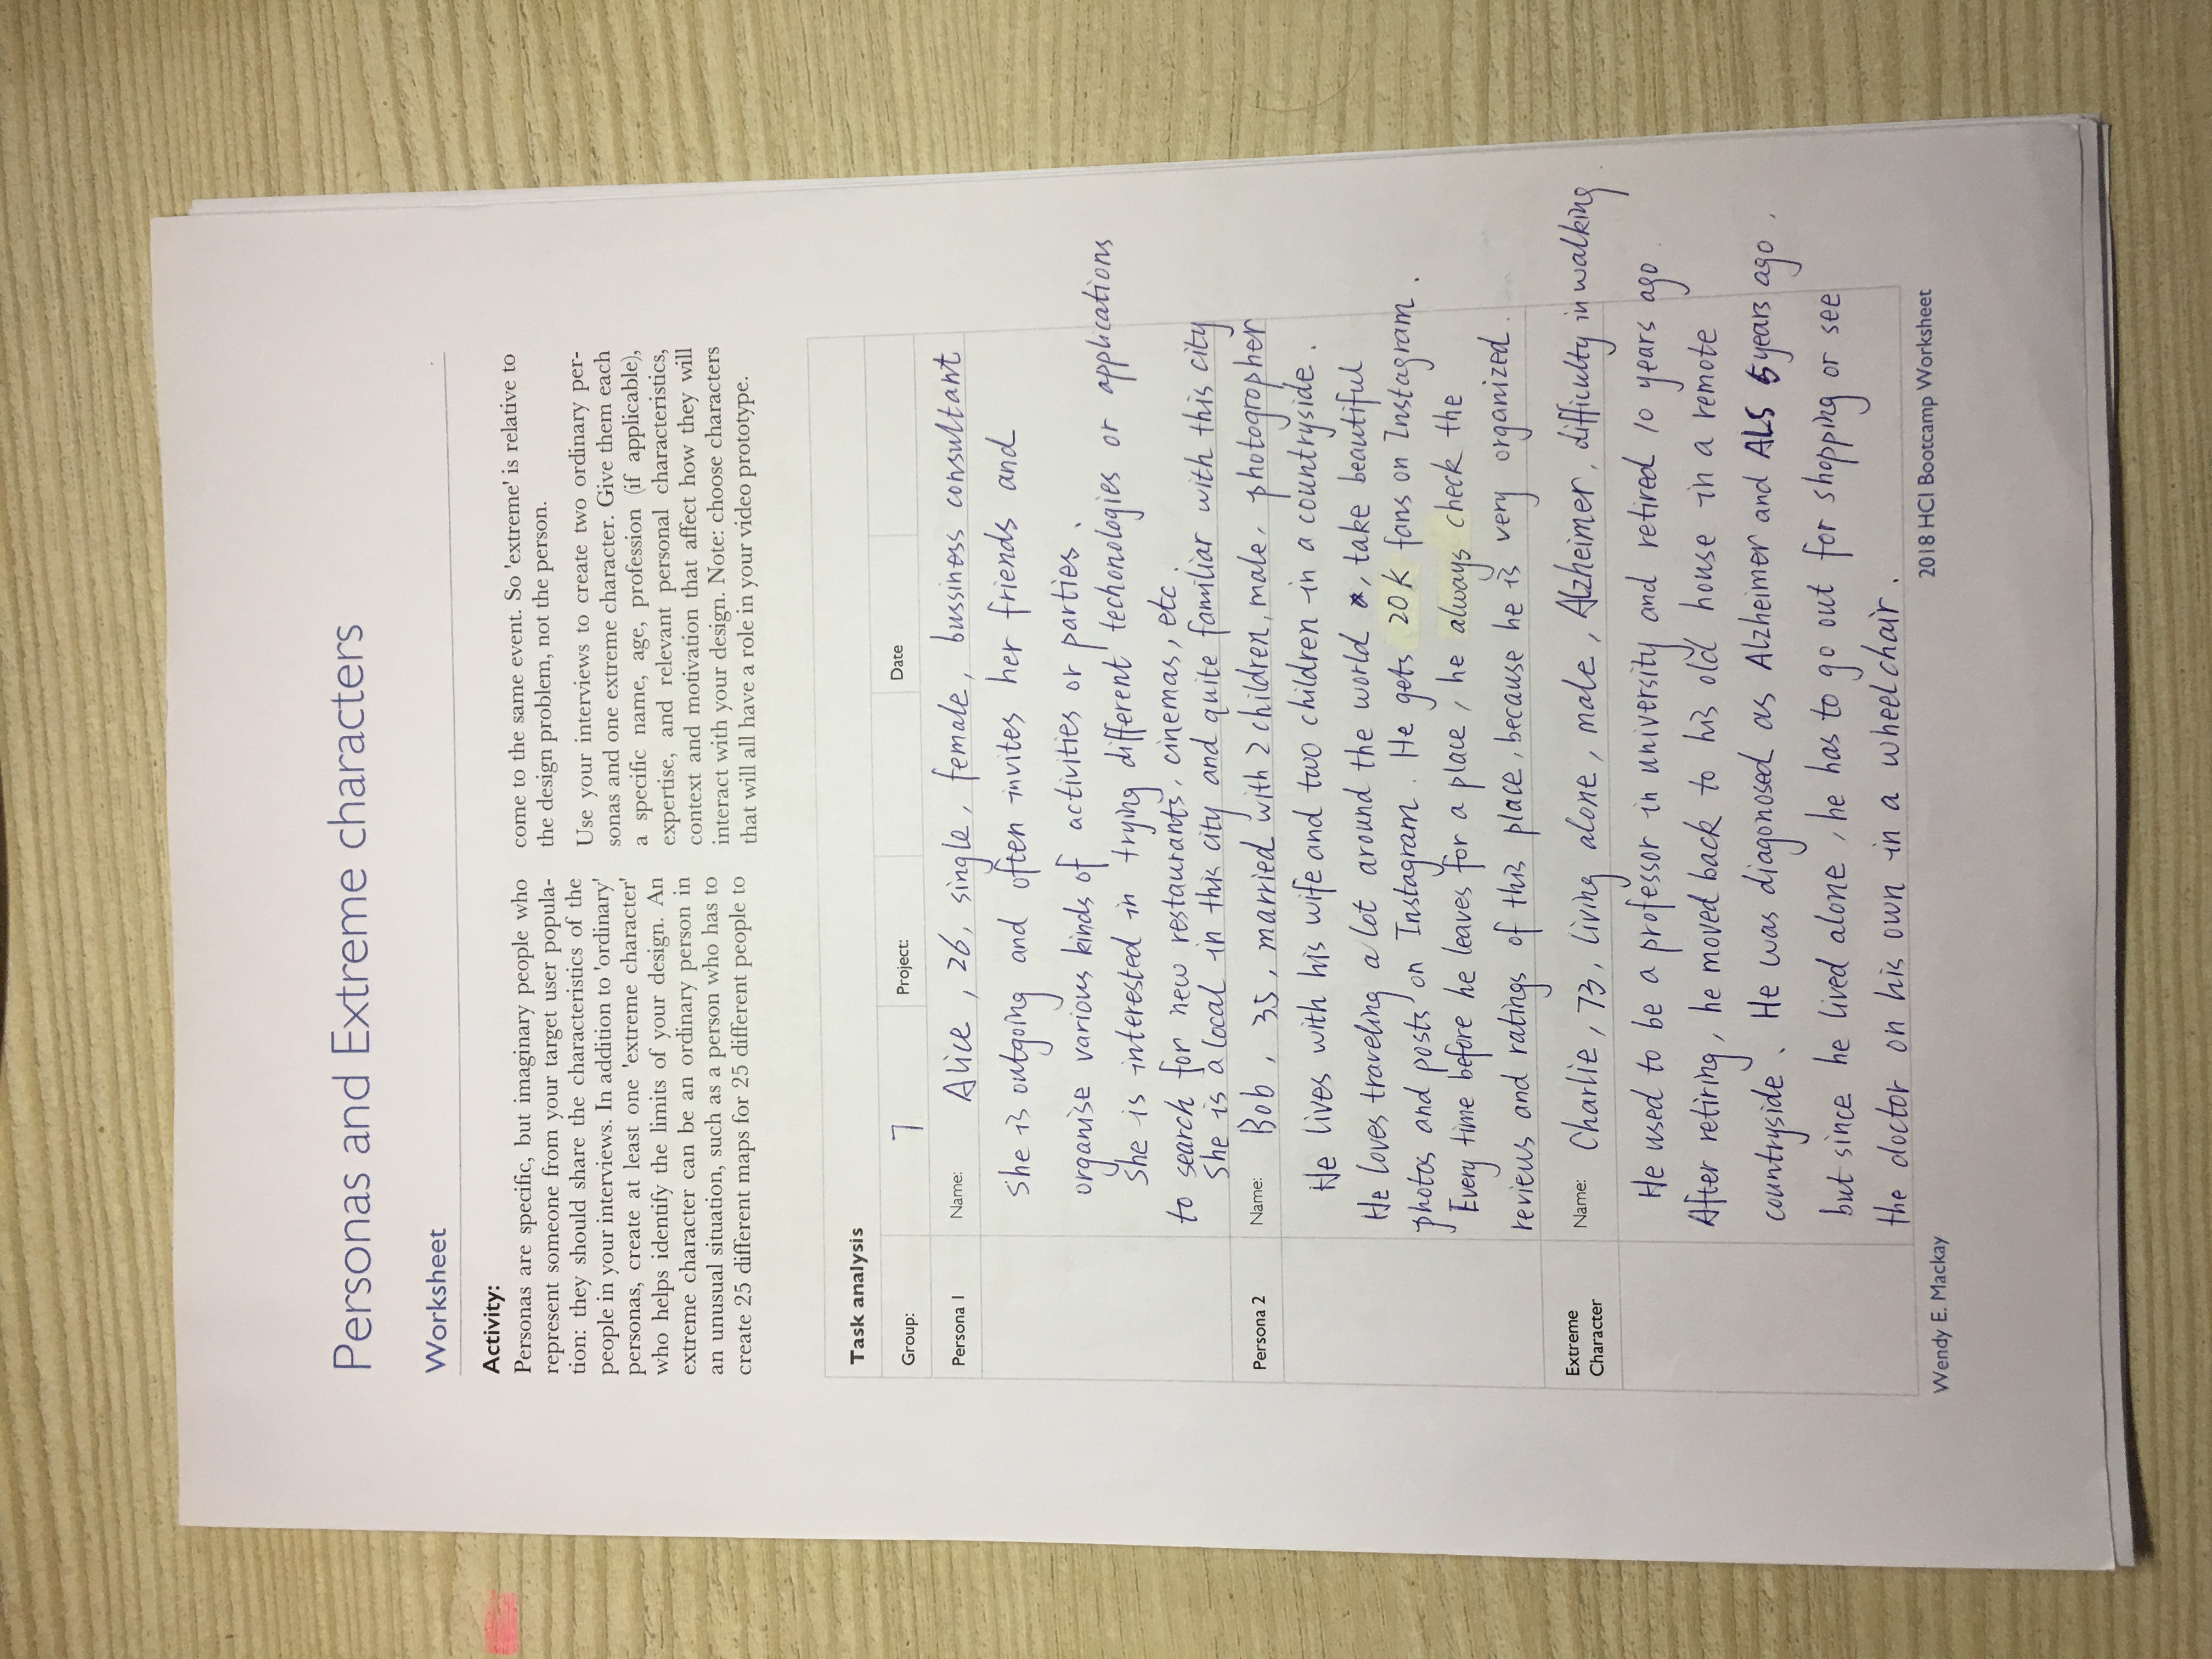 Personas and Extreme characters
Worksheet
Activity:
Personas are specific, but imaginary people who
represent someone from your target user popula-
tion: they should share the characteristics of the
people in your interviews. In addition to 'ordinary'
personas, create at least one 'extreme character'
who helps identify the limits of your design. An
extreme character can be an ordinary person in
an unusual situation, such as a person who has to
create 25 different maps for 25 different people to
come to the same event. So 'extreme' is relative to
the design problem, not the person.
Use your interviews to create two ordinary per-
sonas and one extreme character. Give them each
a specific name, age, profession (if applicable),
expertise, and relevant personal characteristics,
context and motivation that affect how they will
interact with your design. Note: choose characters
that will all have a role in your video prototype.
Task analysis
Group: 7 Project: Date
Persona 1 Name: Alice, 26, single, female, bussiness consultant
She is outgoing and often invites her friends and
organise various kinds of activities or parties.
She is interested in trying different techonologies or applications
to search for new restaurants, cinemas, etc.
She is a local in this city and quite familiar with this city
Persona 2 Name: Bob, 35, married with 2 children, male, photogropher
He lives with his wife and two children in a countryside.
He loves traveling a lot around the world, take beautiful
photos and posts on Instagram. He gets 20K fans on Instagram.
Every time before he leaves for a place, he always check the
reviews and ratings of this place, because he is very organized.
Extreme
Character Name: Charlie, 73, living alone, male, Alzheimer, difficulty in walking
He used to be a professor in university and retired 10 years ago.
After retiring, he moved back to his old house in a remote
countryside. He was diagonosed as Alzheimer and ALS 5 years ago,
but since he lived alone, he has to go out for shopping or see
the doctor on his own in a wheelchair.
Wendy E. Mackay 2018 HCI Bootcamp Worksheet